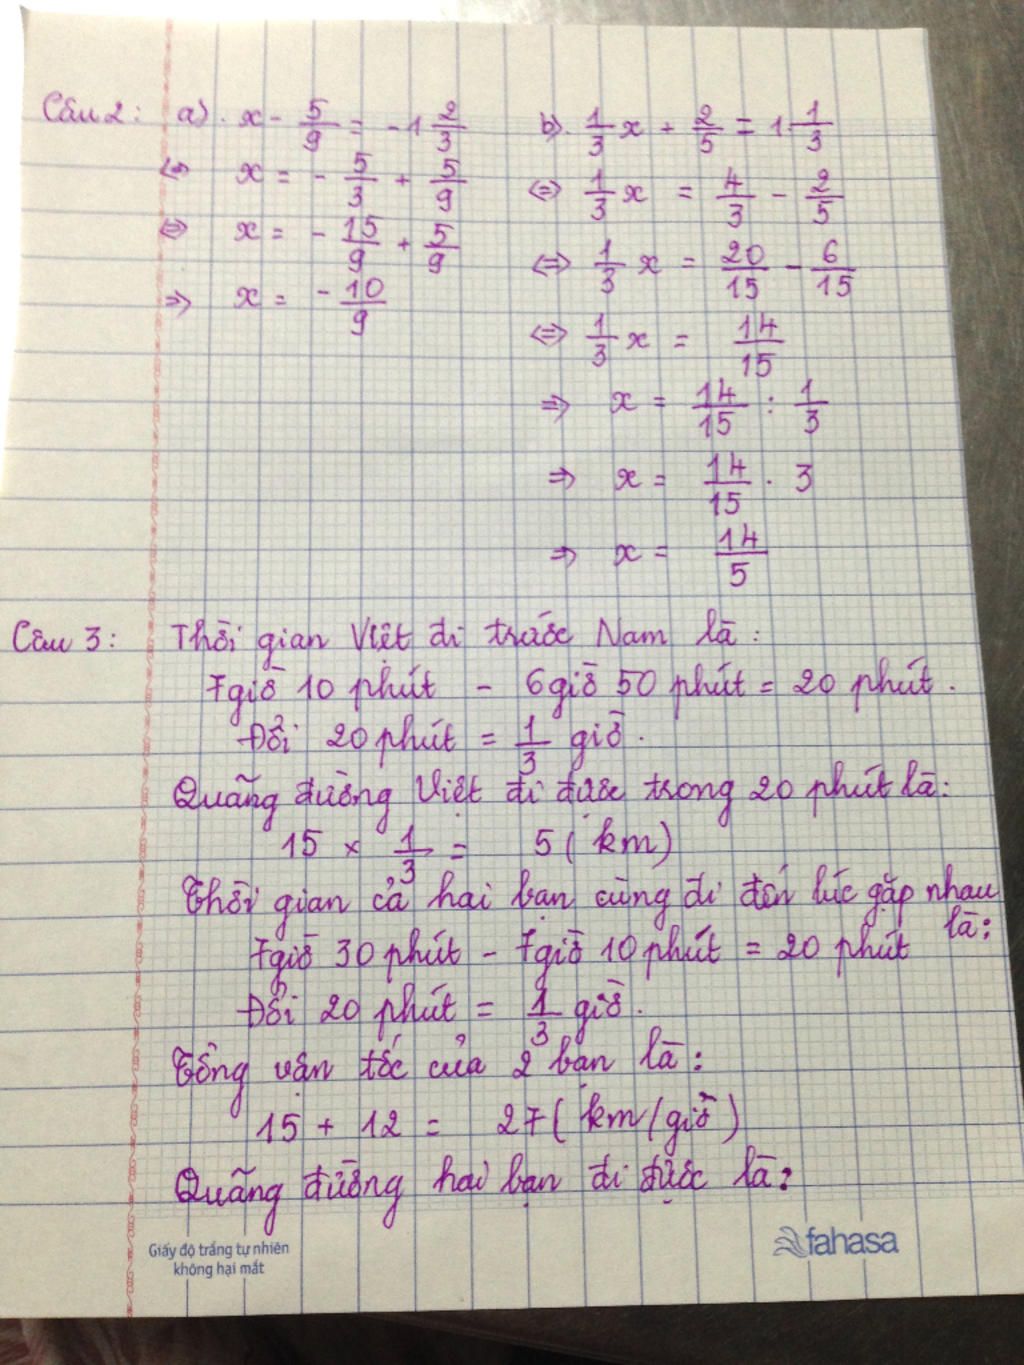 Câu 2: a). x - 5/9 = -1 2/3
⇔ x = - 5/3 + 5/9
⇔ x = - 15/9 + 5/9
⇒ x = - 10/9
b). 1/3 x + 2/5 = 1 1/3
⇔ 1/3 x = 4/3 - 2/5
⇔ 1/3 x = 20/15 - 6/15
⇔ 1/3 x = 14/15
⇒ x = 14/15 : 1/3
⇒ x = 14/15 . 3
⇒ x = 14/5
Câu 3: Thời gian Việt đi trước Nam là:
7giờ 10 phút - 6giờ 50 phút = 20 phút.
Đổi 20 phút = 1/3 giờ.
Quãng đường Việt đi được trong 20 phút là:
15 × 1/3 = 5 (km)
Thời gian cả hai bạn cùng đi đến lúc gặp nhau
là:
7giờ 30 phút - 7giờ 10 phút = 20 phút
Đổi 20 phút = 1/3 giờ.
Tổng vận tốc của 2 bạn là:
15 + 12 = 27 (km/giờ)
Quãng đường hai bạn đi được là:
Giấy độ trắng tự nhiên
không hại mắt
fahasa